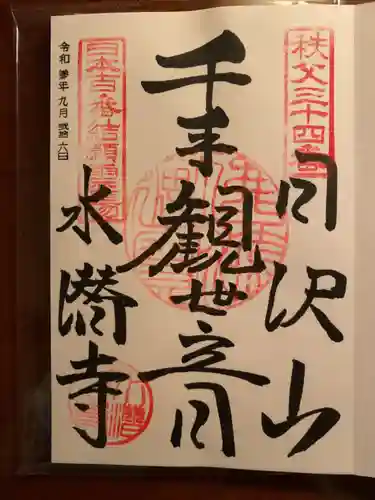 秩父三十四番
日沢山
千手観世音
日本百番結願霊場
水潜寺
令和参年九月弐拾六日